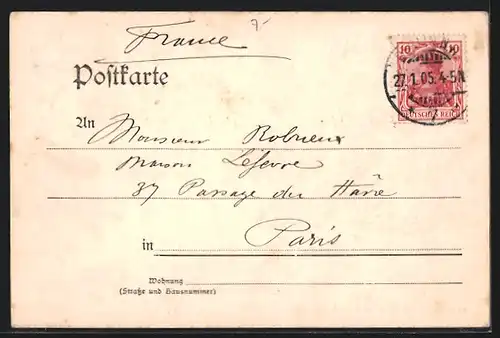 7-
France
Postkarte
10 10
27.1.05.4-5N
DEUTSCHES REICH
An Monsieur Robrieux
Maison Lefevre
37 Passage du Havre
in Paris
Wohnung
(Straße und Hausnummer)